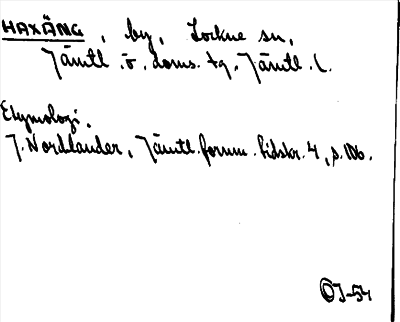 HAXÄNG, by, Lockne sn,
Jämtl. ö. doms. tg, Jämtl. l.
Etymologi.
J. Nordlander, Jämtl. fornm. tidskr. 4, s. 106.
OJ-54